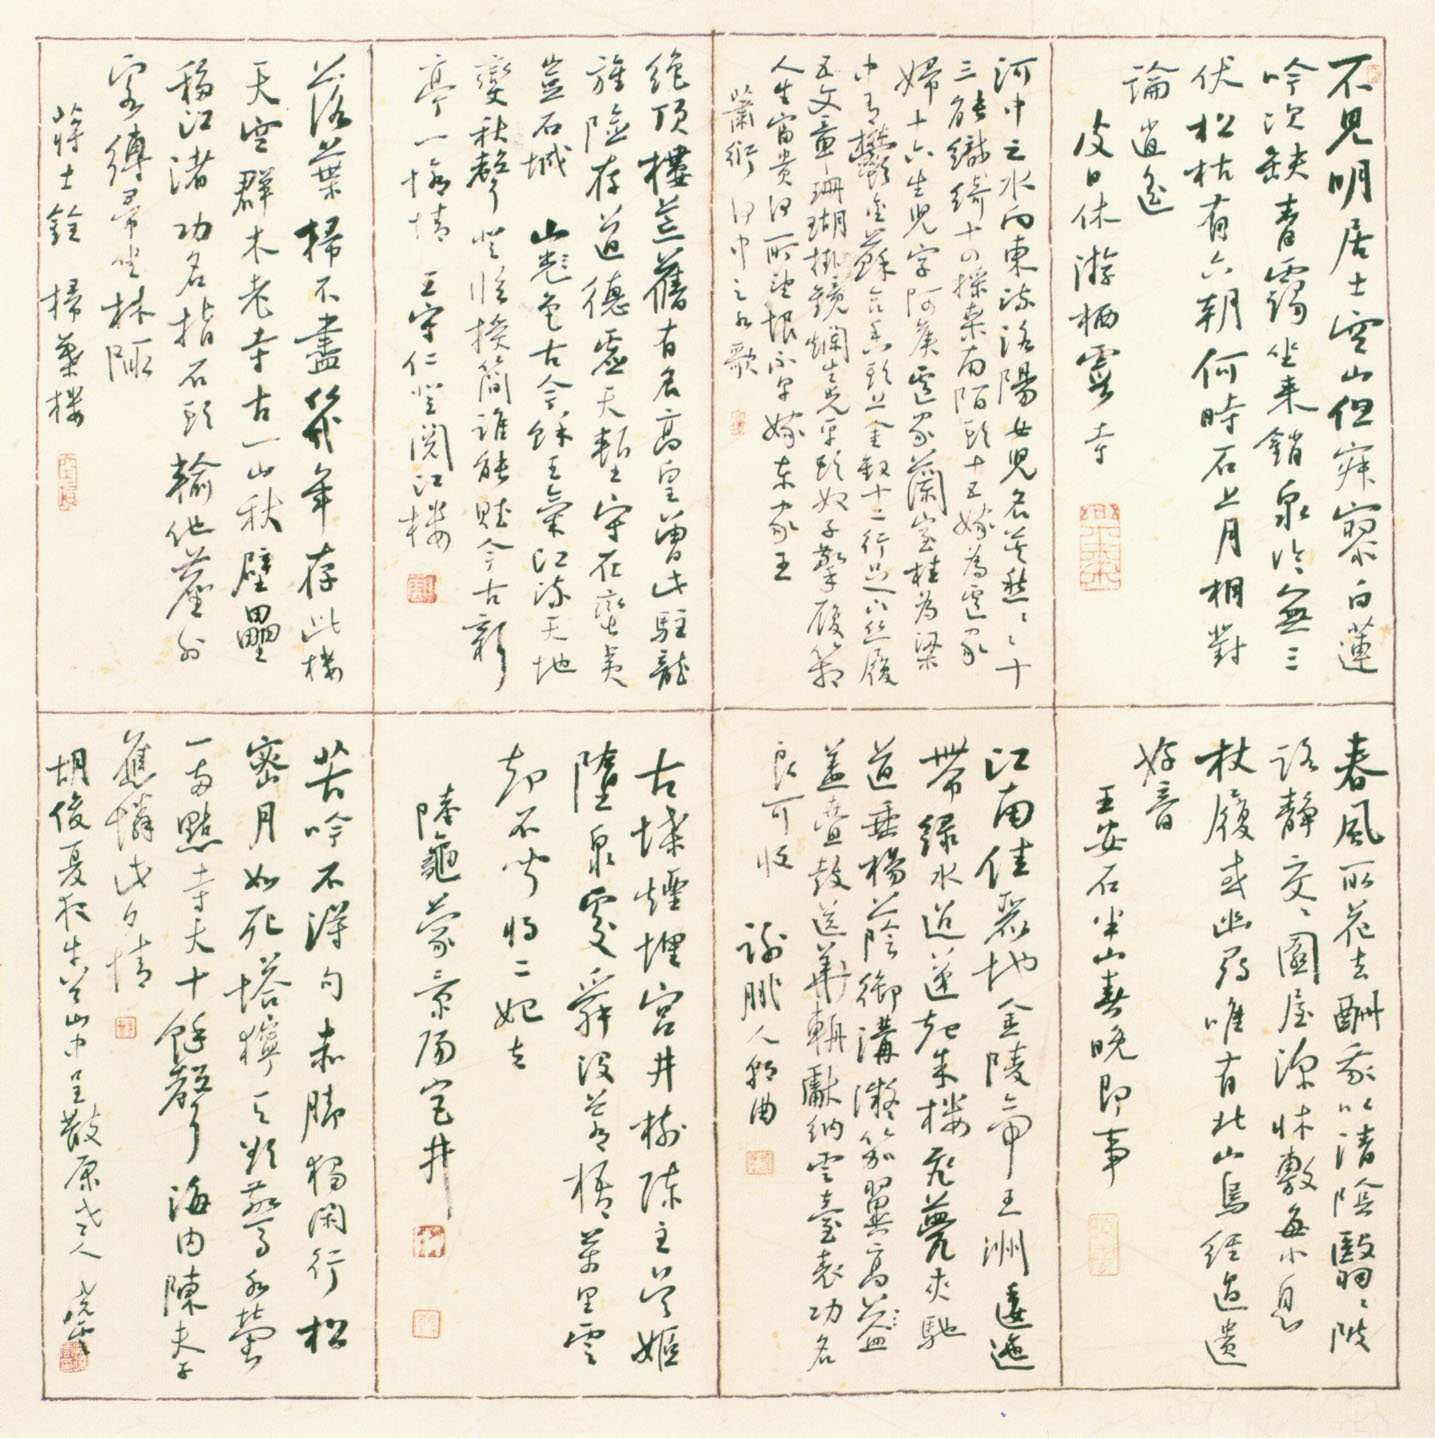 不見明居士空山但寂寥白蓮
吟次缺青靄坐來銷泉冷無三
伏松枯有六朝何時石上月相對
論逍遙
皮日休游栖霞寺
河中之水向東流洛陽女兒名莫愁〻〻十
三能織綺十四採桑南陌頭十五嫁為盧家
婦十六生兒字阿侯盧家蘭室桂為梁
中有鬱金蘇合香頭上金釵十二行足下絲履
五文章珊瑚掛鏡爛生光平頭奴子擎履箱
人生富貴何所望恨不早嫁東家王
蕭衍 河中之水歌
絶頂樓荒舊有名高皇曾此駐龍
旌險存道德虛天塹守在蠻夷
豈石城 山色古今餘王氣江流天地
變秋聲登臨授簡誰能賦今古新
亭一愴情 王守仁登閱江樓
落葉掃不盡幾年存此樓
天空群木老寺古一山秋壁壘
移江渚功名指石頭輸他塵外
客縛帚坐林陬
蔣士銓 掃葉樓
春風取花去酬我以清陰翳〻陂
路靜交〻園屋深牀敷每小息
杖屨或幽尋唯有北山鳥經過遺
好音
王安石半山春晚即事
江南佳麗地金陵帝王洲逶迤
帶綠水迢遞起朱樓飛甍夾馳
道垂楊蔭御溝凝笳翼高蓋
疊鼓送華輈獻納雲臺表功名
良可收 謝朓入朝曲
古堞煙埋宮井樹陳主吳姬
墮泉處舜没蒼梧萬里雲
却不聞將二妃去
陸龜蒙景陽宮井
苦吟不得句赤脚獨閑行松
密月如死塔獰天欲驚水螢
一兩點寺犬十餘聲海内陳夫子
應憐此夕情
胡俊夏夜牛首山中呈散原老人